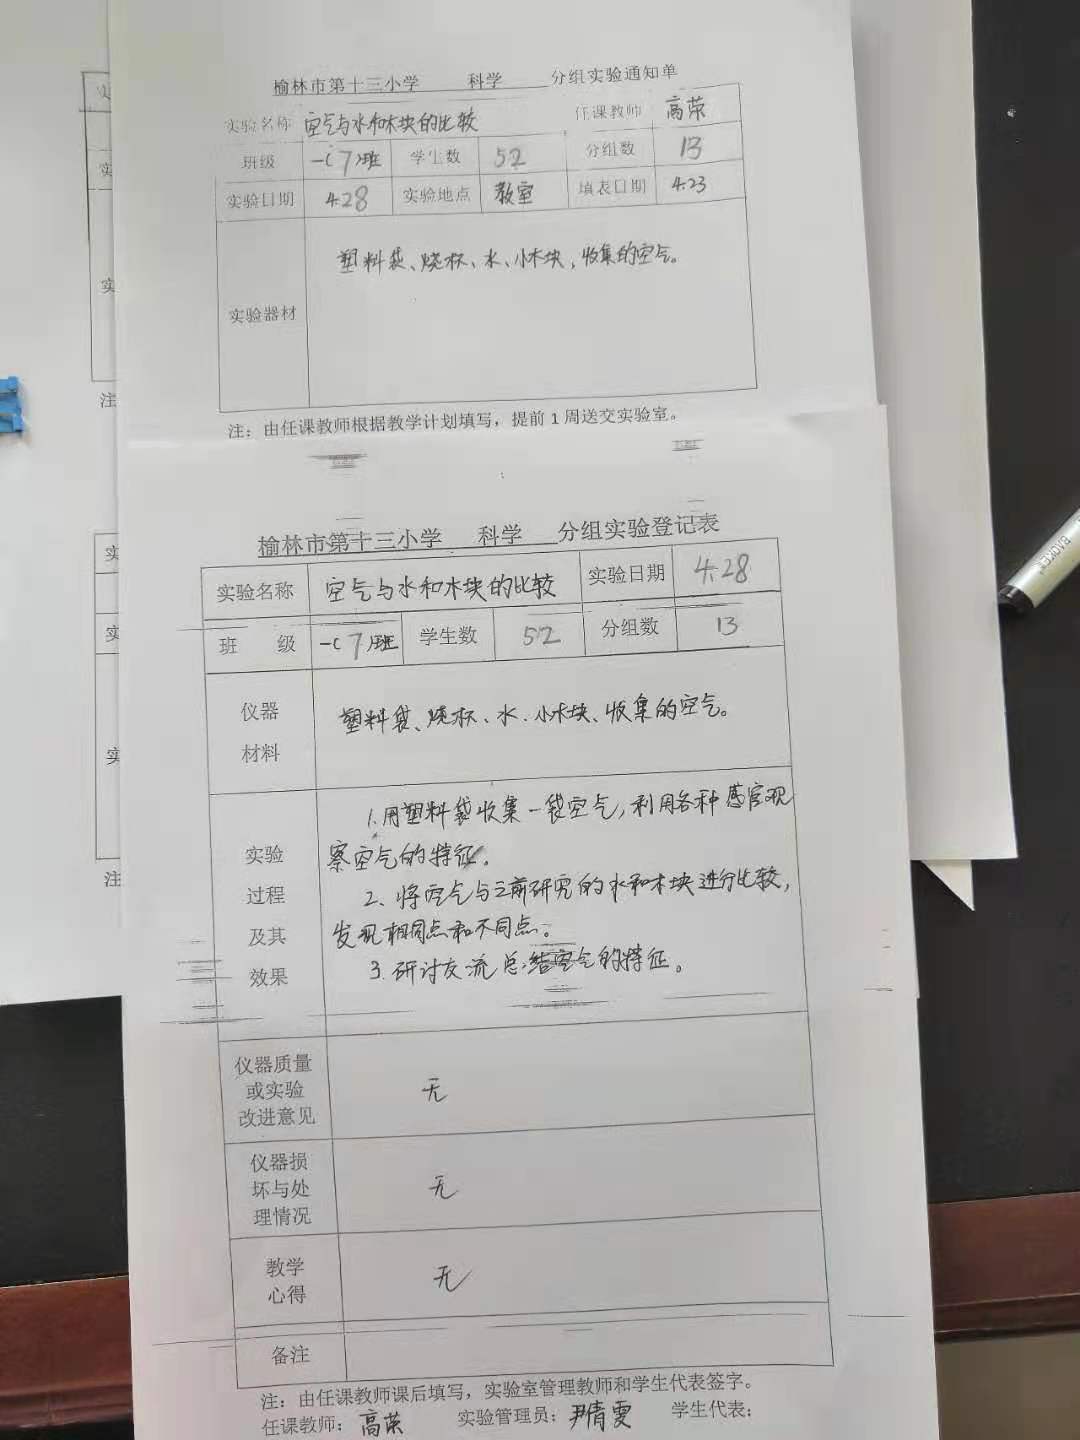 榆林市第十三小学 科学 分组实验通知单
实验名称 空气与水和木块的比较 任课教师 高荣
班级 一(7)班 学生数 52 分组数 13
实验日期 4.28 实验地点 教室 填表日期 4.23
实验器材 塑料袋、烧杯、水、小木块、收集的空气。
注：由任课教师根据教学计划填写，提前1周送交实验室。
榆林市第十三小学 科学 分组实验登记表
实验名称 空气与水和木块的比较 实验日期 4.28
班 级 一(7)班 学生数 52 分组数 13
仪器
材料
塑料袋、烧杯、水、小木块、收集的空气。
实验
过程
及其
效果
1.用塑料袋收集一袋空气,利用各种感官观
察空气的特征。
2、将空气与之前研究的水和木块进行比较,
发现相同点和不同点。
3.研讨交流总结空气的特征。
仪器质量
或实验
改进意见
无
仪器损
坏与处
理情况
无
教学
心得
无
备注
注：由任课教师课后填写，实验室管理教师和学生代表签字。
任课教师：高荣 实验管理员：尹倩雯 学生代表：
实
实
实
注
实
实
实
注
BAOKE